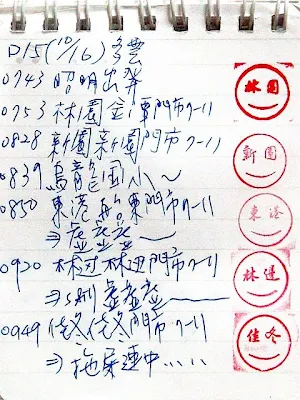 D15(10/16)多雲
0743 昭明出發
0753 林園金東門市7-11
林園
0828 新園新園門市7-11
新園
0839 烏龍國小~
0850 東港 東門市7-11
東港
⇒蓋章~
0920 林邊林邊門市7-11
林邊
⇒S到 蓋章~
0949 佳冬佳冬門市7-11
佳冬
⇒拖屎連中....